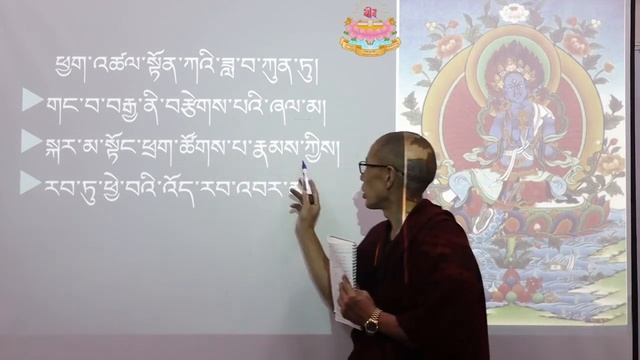 ཕྱག་འཚལ་སྟོན་ཀའི་ཟླ་བ་ཀུན་ཏུ།
གང་བ་བརྒྱ་ནི་བརྩེགས་པའི་ཞལ་མ།
སྐར་མ་སྟོང་ཕྲག་ཚོགས་པ་རྣམས་ཀྱིས།
རབ་ཏུ་ཕྱེ་བའི་འོད་རབ་འབར་